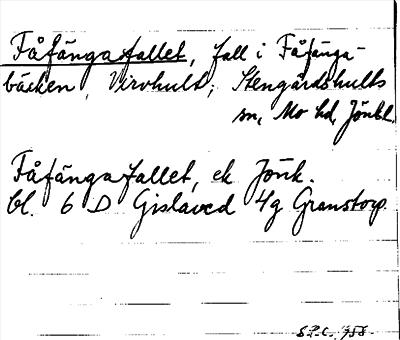 Fåfängafallet, fall i Fåfänga-
bäcken, Virvhult, Stengårdshults
sn, Mo hd, Jönkl.
Fåfängafallet, ek Jönk.
bl. 6 D Gislaved 4g Granstorp.
S.P.C. 1958